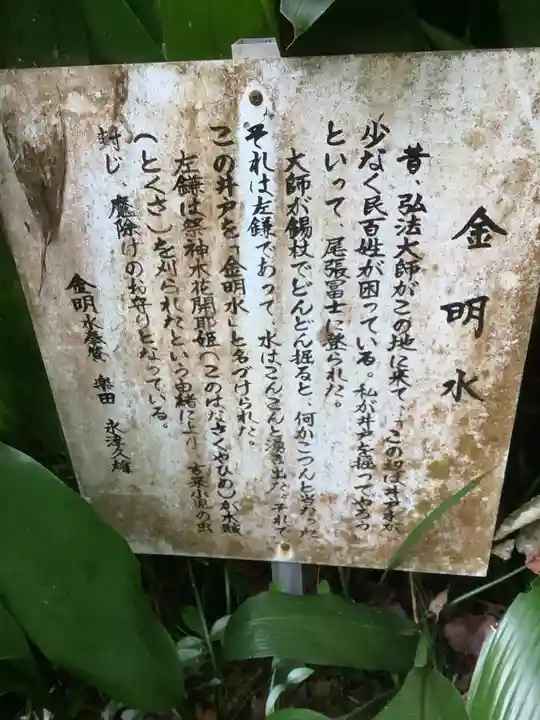 金明水
昔、弘法大師がこの地に来て、「この辺は井戸が
少なく民百姓が困っている。私が井戸を掘ってやろう
といって、尾張冨士に登られた。
大師が錫杖でどんどん掘ると、何かこつんと当たった
それは左鎌であって、水はこんこんと湧き出た。それで
この井戸を「金明水」と名づけられた。
左鎌は祭神木花開耶姫(このはなさくやひめ)が木賊
(とくさ)を刈られたという由緒により 古来小児の虫
封じ、魔除けのお守りとなっている。
金明水奉賛 楽田 永津久雄